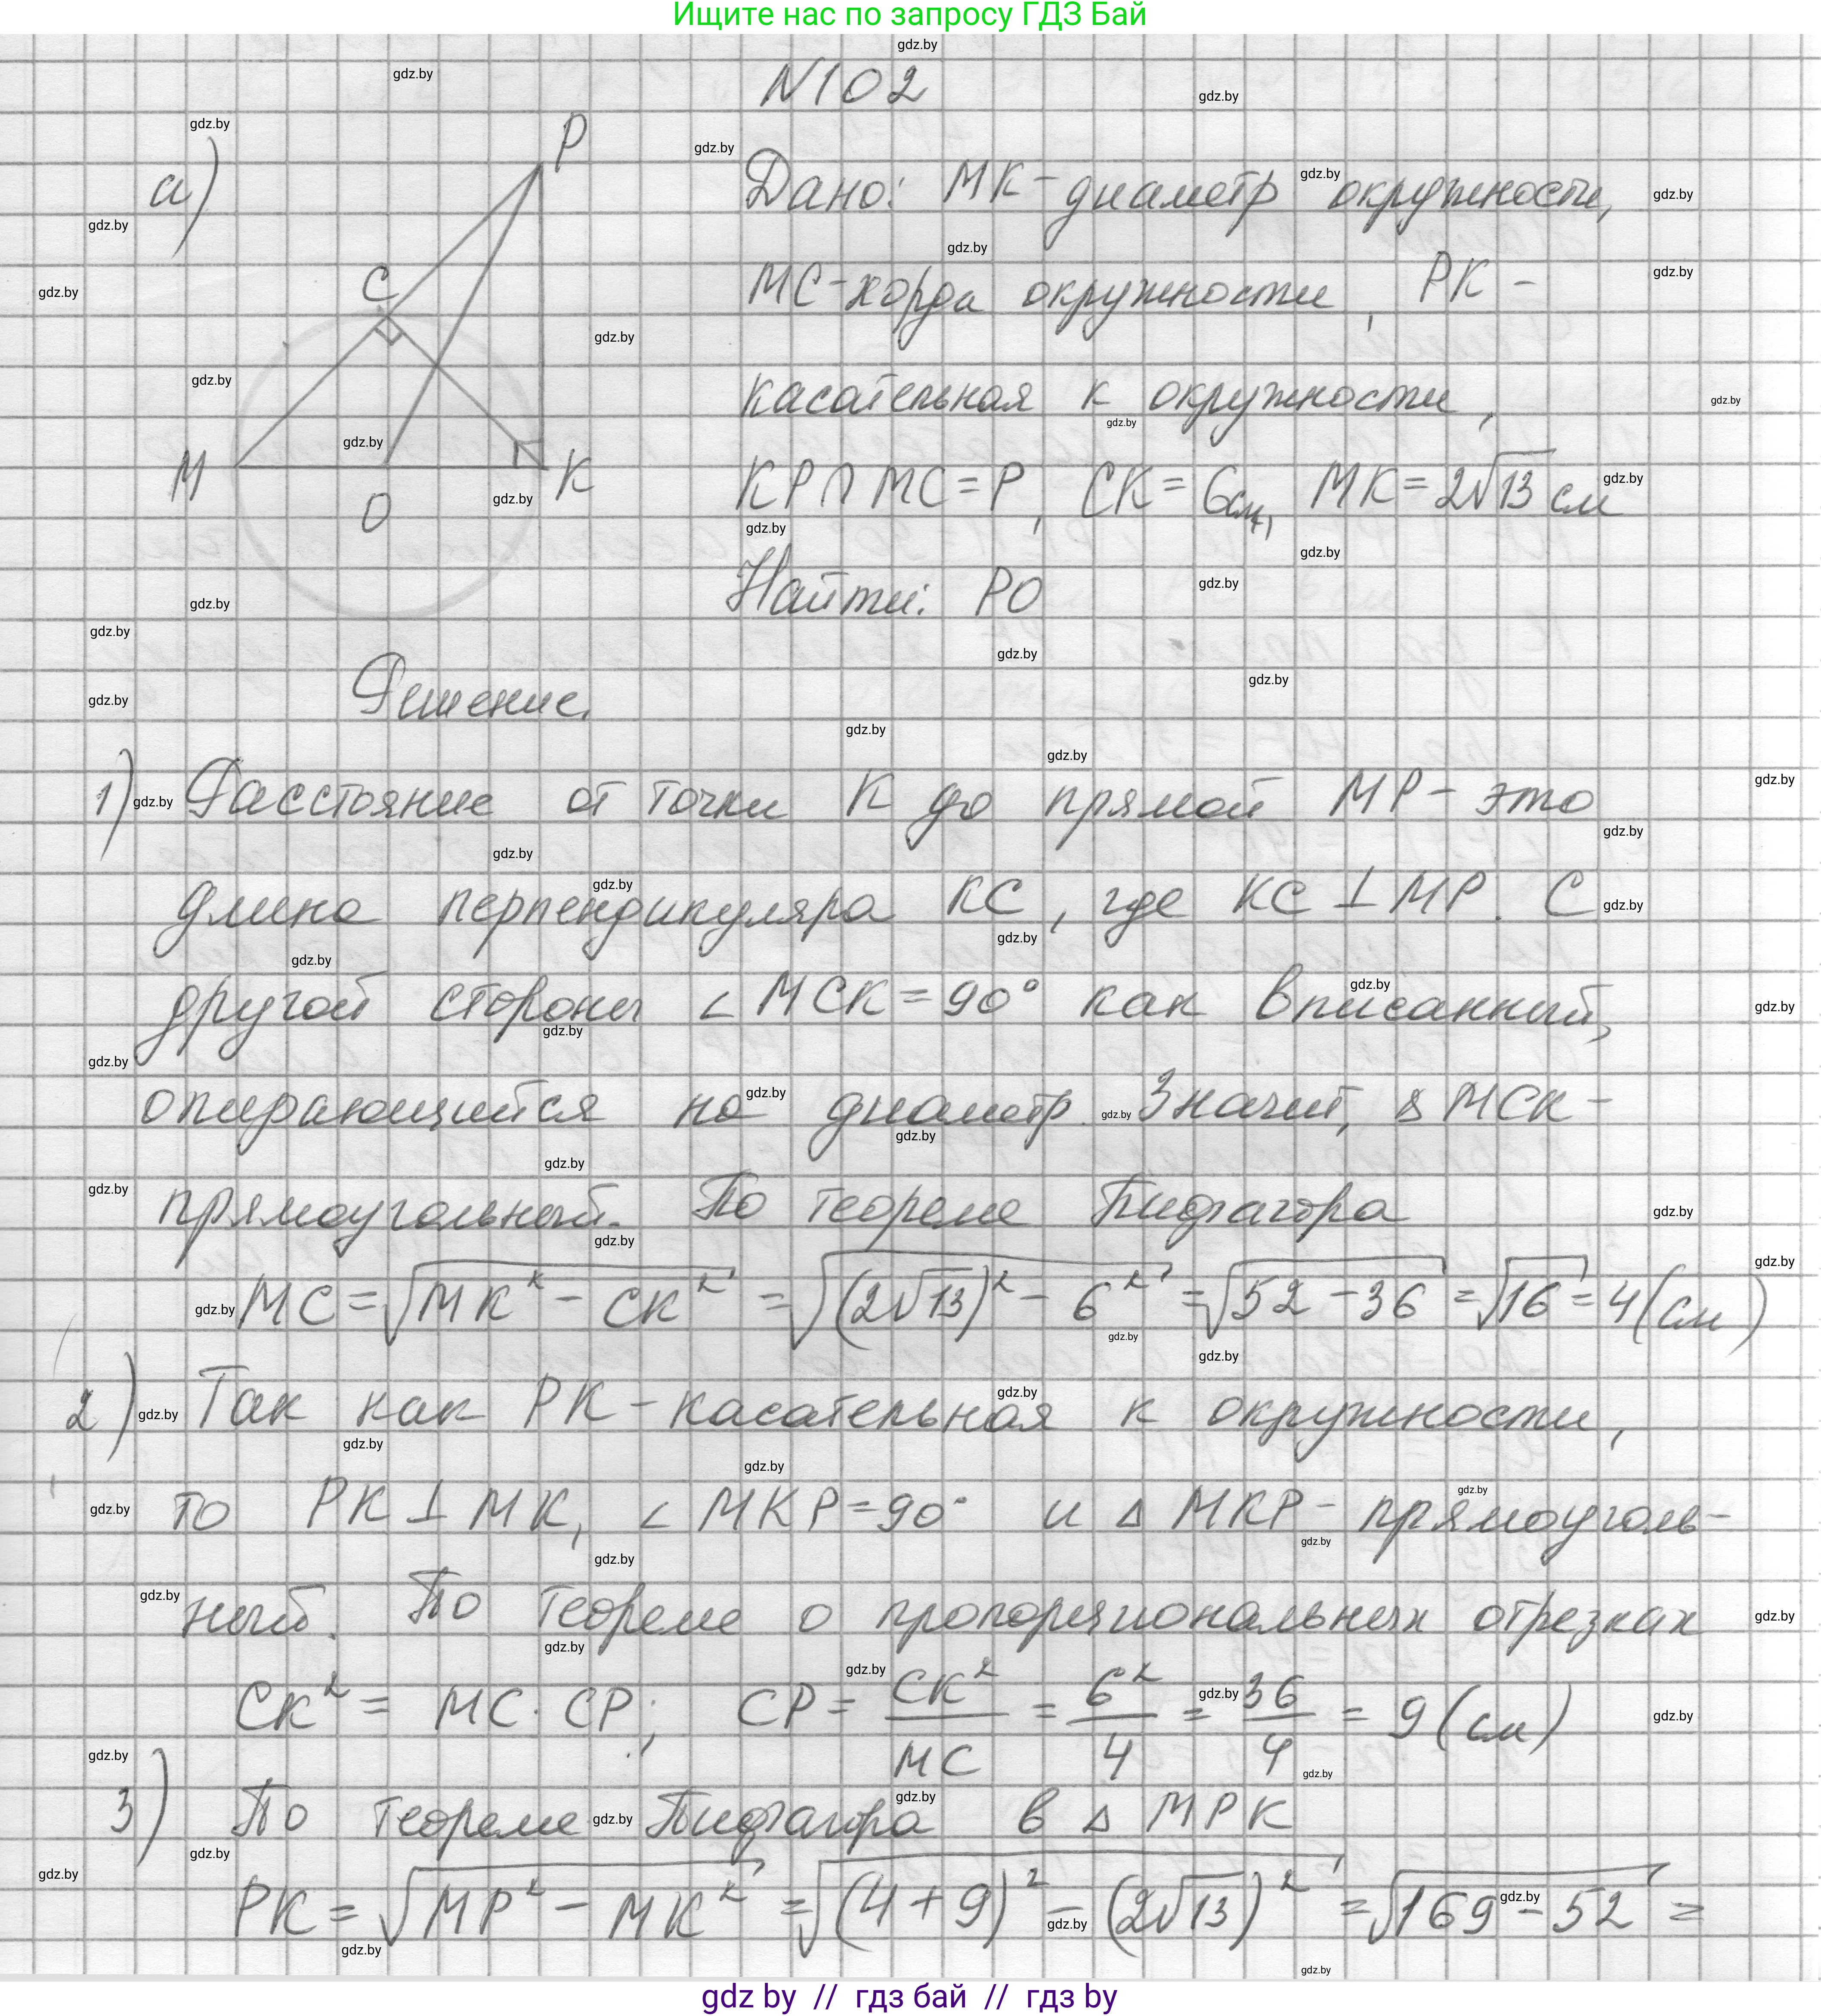 Ищите нас по запросу ГДЗ Бай
N102
а)
P
C
M
O
K
Дано: MK-диаметр окружности,
MC-хорда окружности, PK -
касательная к окружности,
KP∩MC=P, CK=6см, MK=2√13 см
Найти: PO
Решение.
1) Расстояние от точки K до прямой MP- это
длина перпендикуляра KC, где KC⊥MP. С
другой стороны ∠MCK=90° как вписанный,
опирающийся на диаметр. Значит, ΔMCK-
прямоугольный. По теореме Пифагора
MC=√(MK²-CK²)=√((2√13)²-6²)=√(52-36)=√16=4(см)
2) Так как PK-касательная к окружности,
то PK⊥MK, ∠MKP=90° и ΔMKP- прямоуголь-
ный. По теореме о пропорциональных отрезках
CK²= MC·CP; CP= CK²/MC = 6²/4 = 36/4 = 9(см)
3) По теореме Пифагора в ΔMPK
PK=√(MP²-MK²)=√((4+9)²-(2√13)²)=√(169-52)=
gdz by // гдз бай // гдз by